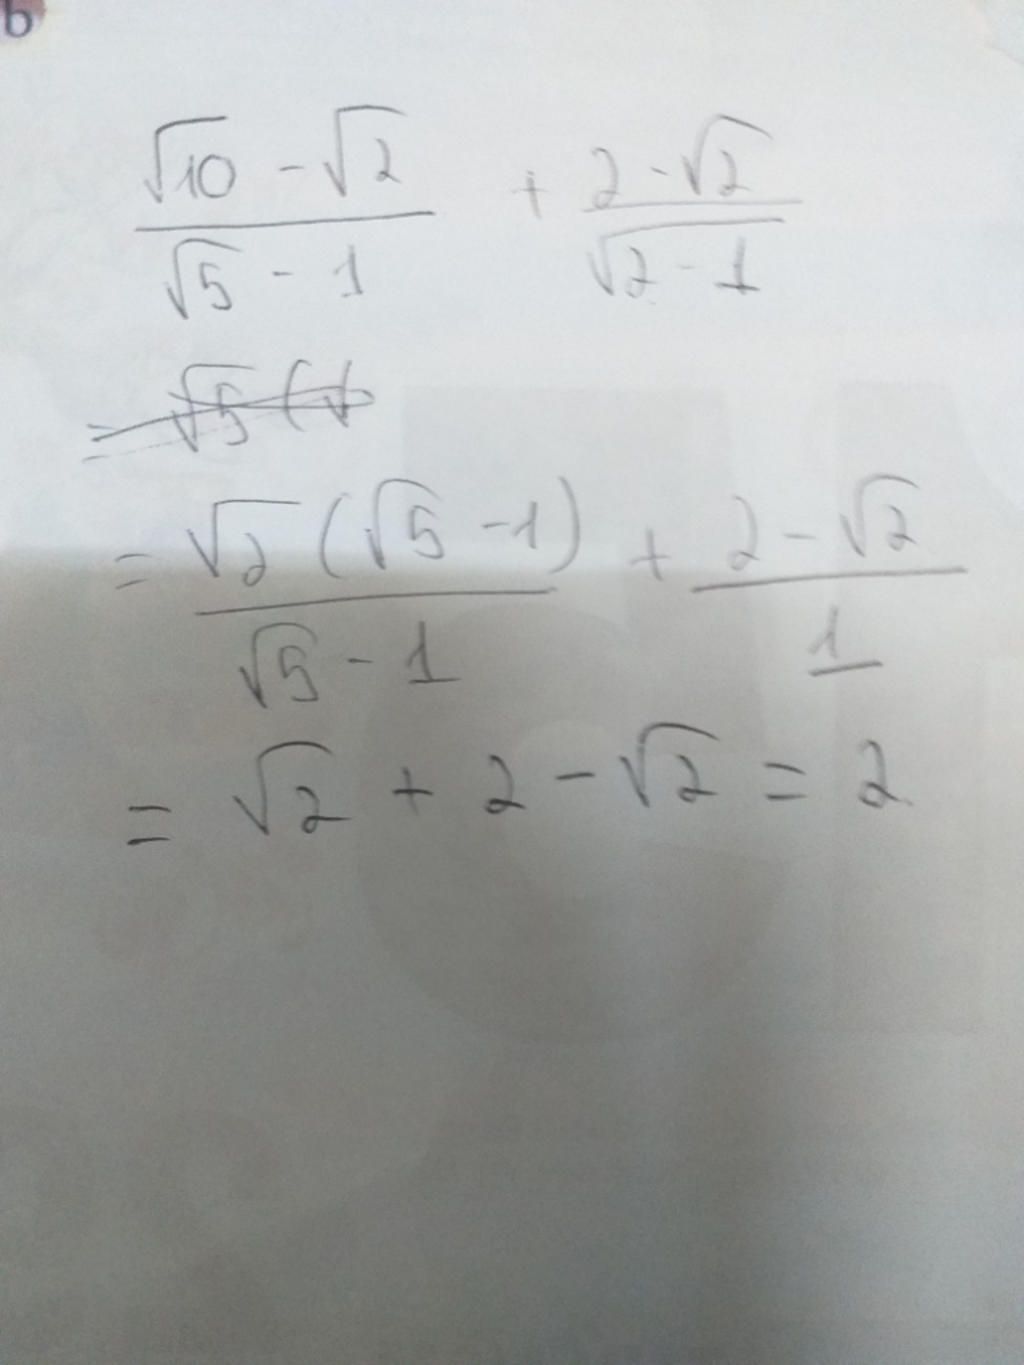 b
\frac{\sqrt{10} - \sqrt{2}}{\sqrt{5} - 1} + \frac{2 - \sqrt{2}}{\sqrt{2} - 1}
= \sqrt{5} (\sqrt{
= \frac{\sqrt{2} (\sqrt{5} - 1)}{\sqrt{5} - 1} + \frac{2 - \sqrt{2}}{1}
= \sqrt{2} + 2 - \sqrt{2} = 2